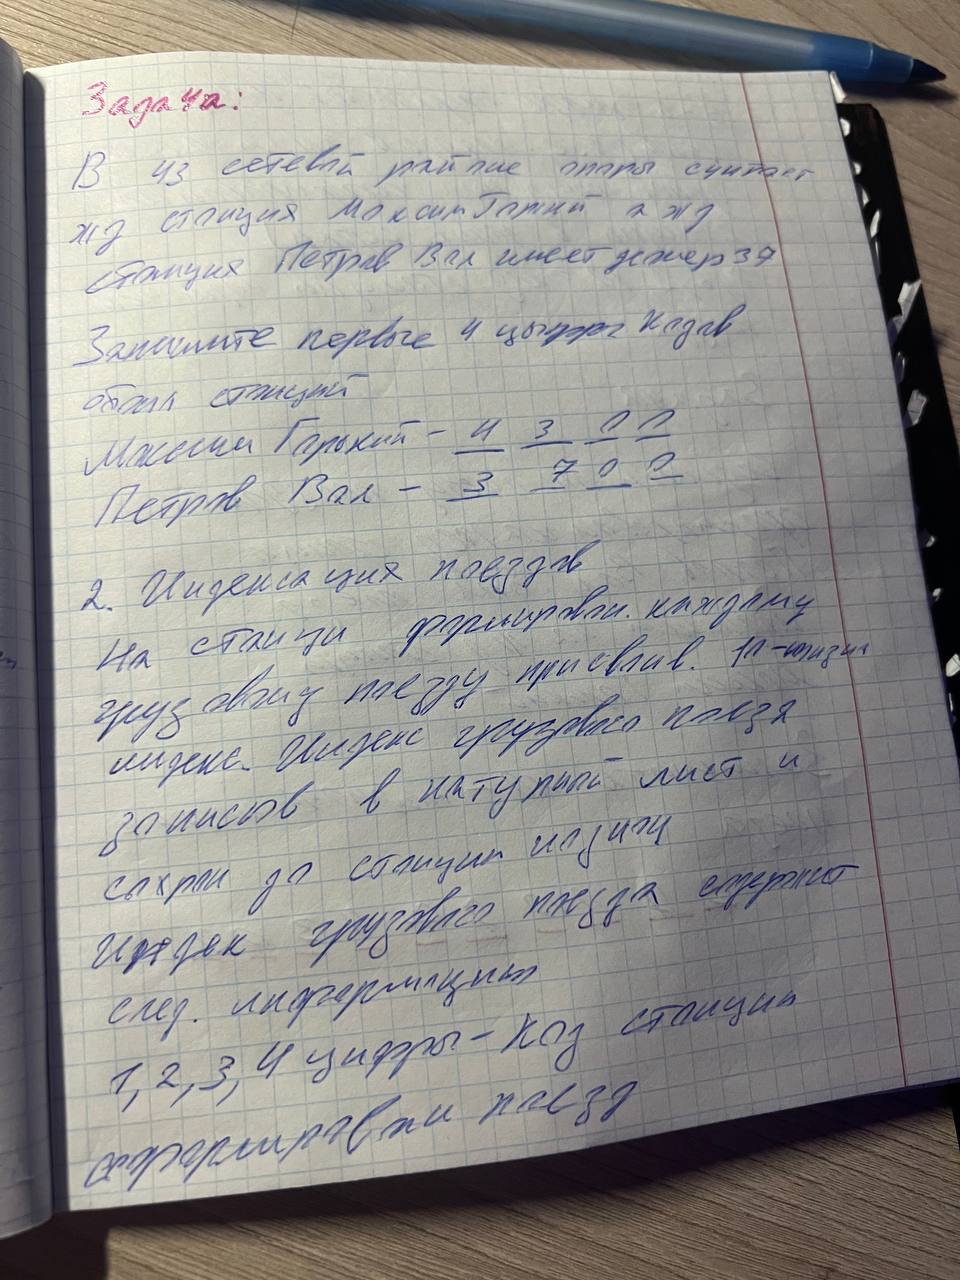 Задача:
В 43 сетевой районе опоры считает
жд станция Максим Горкий а жд
станция Петров Вал имеет номер 37
Запишите первые 4 цыфры кодов
обоих станций
Максим Горький - 4 3 0 0
Петров Вал - 3 7 0 0
2. Индексация поездов
На станци формирован. каждому
грузовому поезду присвлив. 10-тизн
индекс. Индекс грузового поезя
записов в натурный лист и
сохрон до станции
Индек грузового поезда содержит
след. информацию
1, 2, 3, 4 цифры - код станции
сформировки поезд